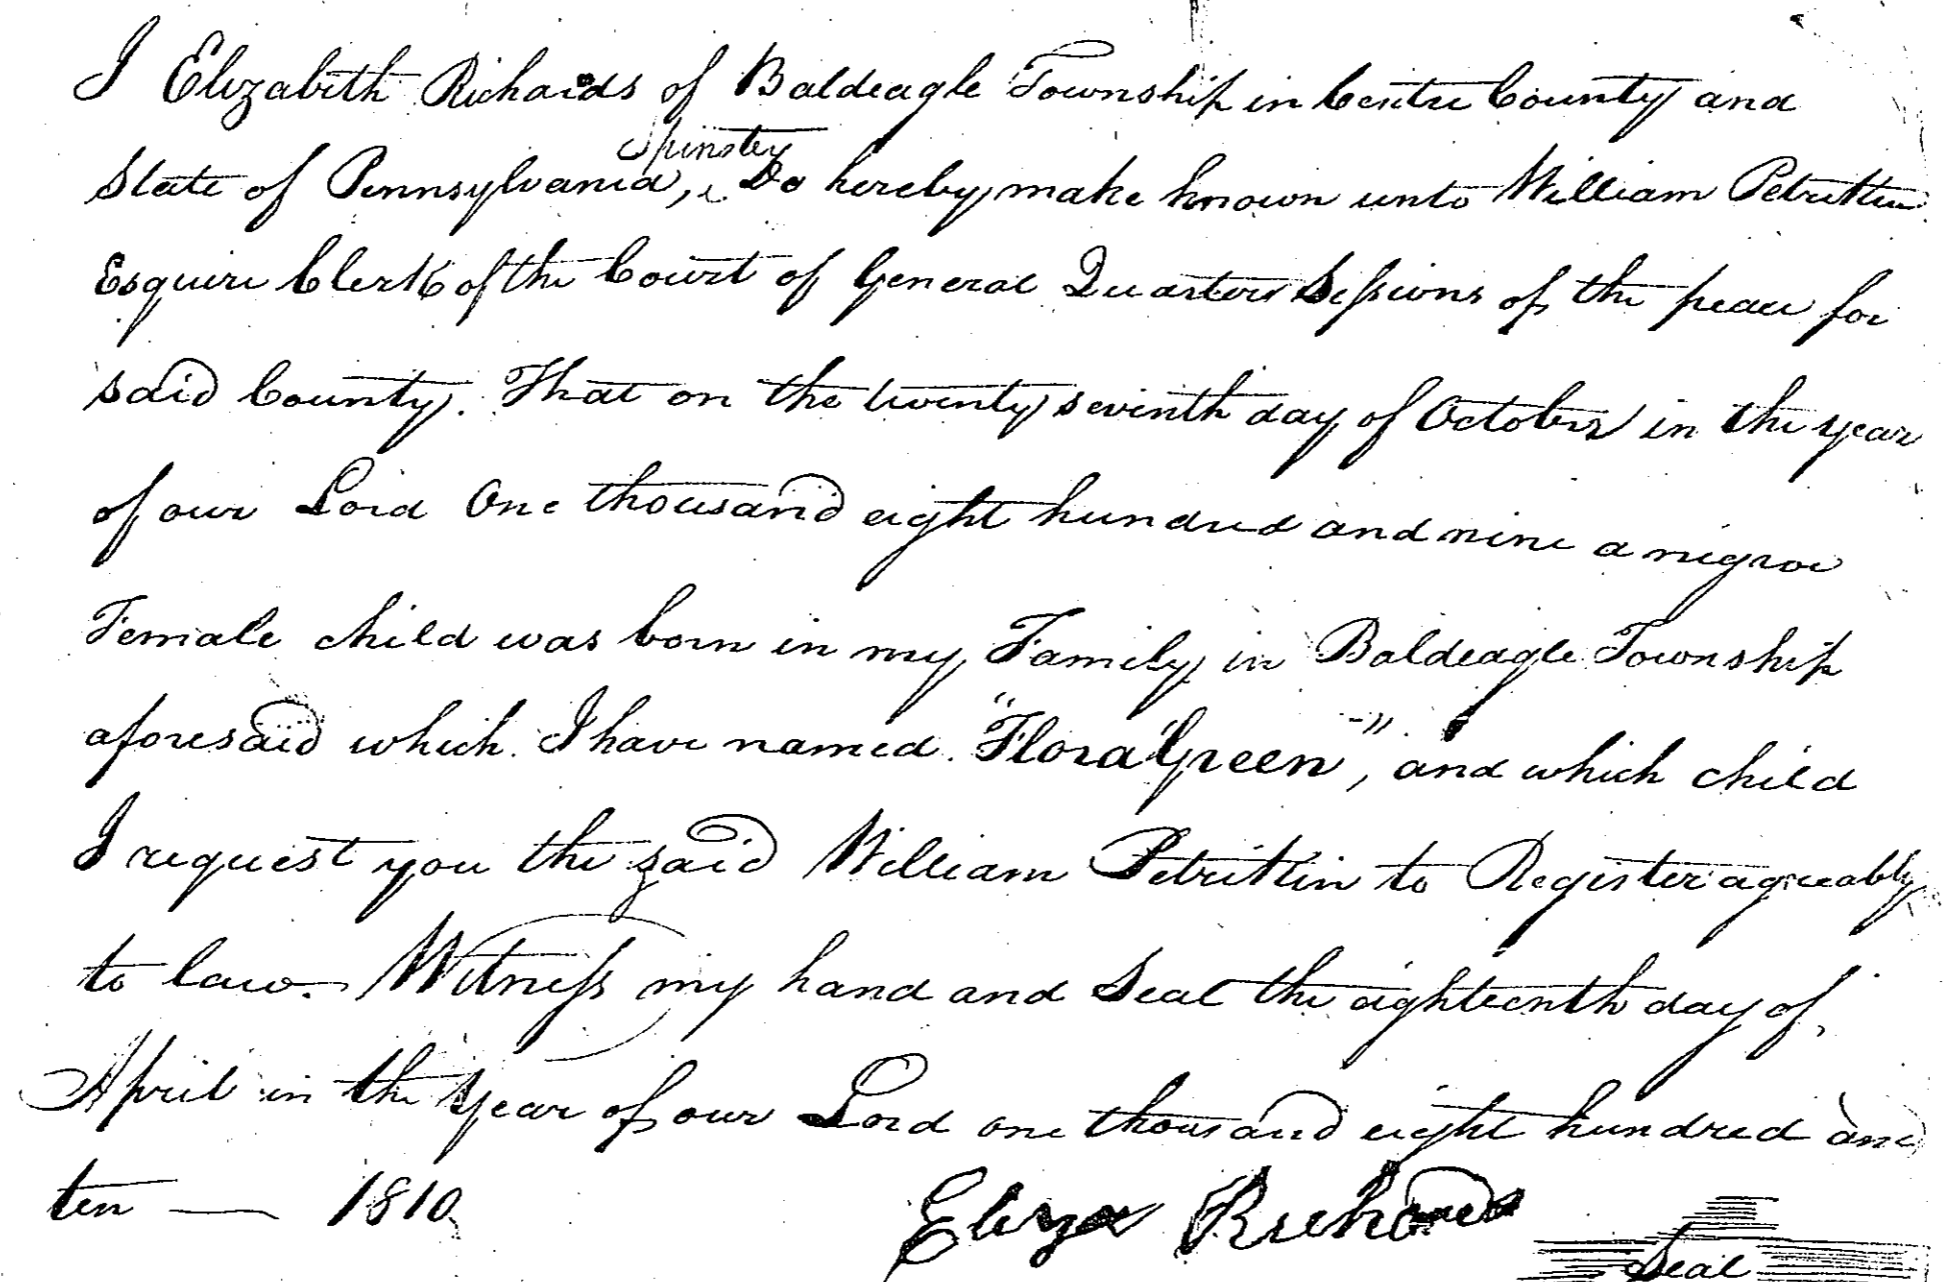 I Elizabeth Richards of Baldeagle Township in Centre County and
Spinster
State of Pennsylvania, Do hereby make known unto William Petrikin
Esquire Clerk of the Court of General Quarter Sessions of the peace for
said County. That on the twenty seventh day of October in the year
of our Lord One thousand eight hundred and nine a negroe
Female child was born in my Family in Baldeagle Township
aforesaid which I have named "Flora Green", and which child
I request you the said William Petrikin to Register agreeably
to law. Witness my hand and Seal the eighteenth day of
April in the Year of our Lord one thousand eight hundred and
ten — 1810
Eliza Richards
Seal